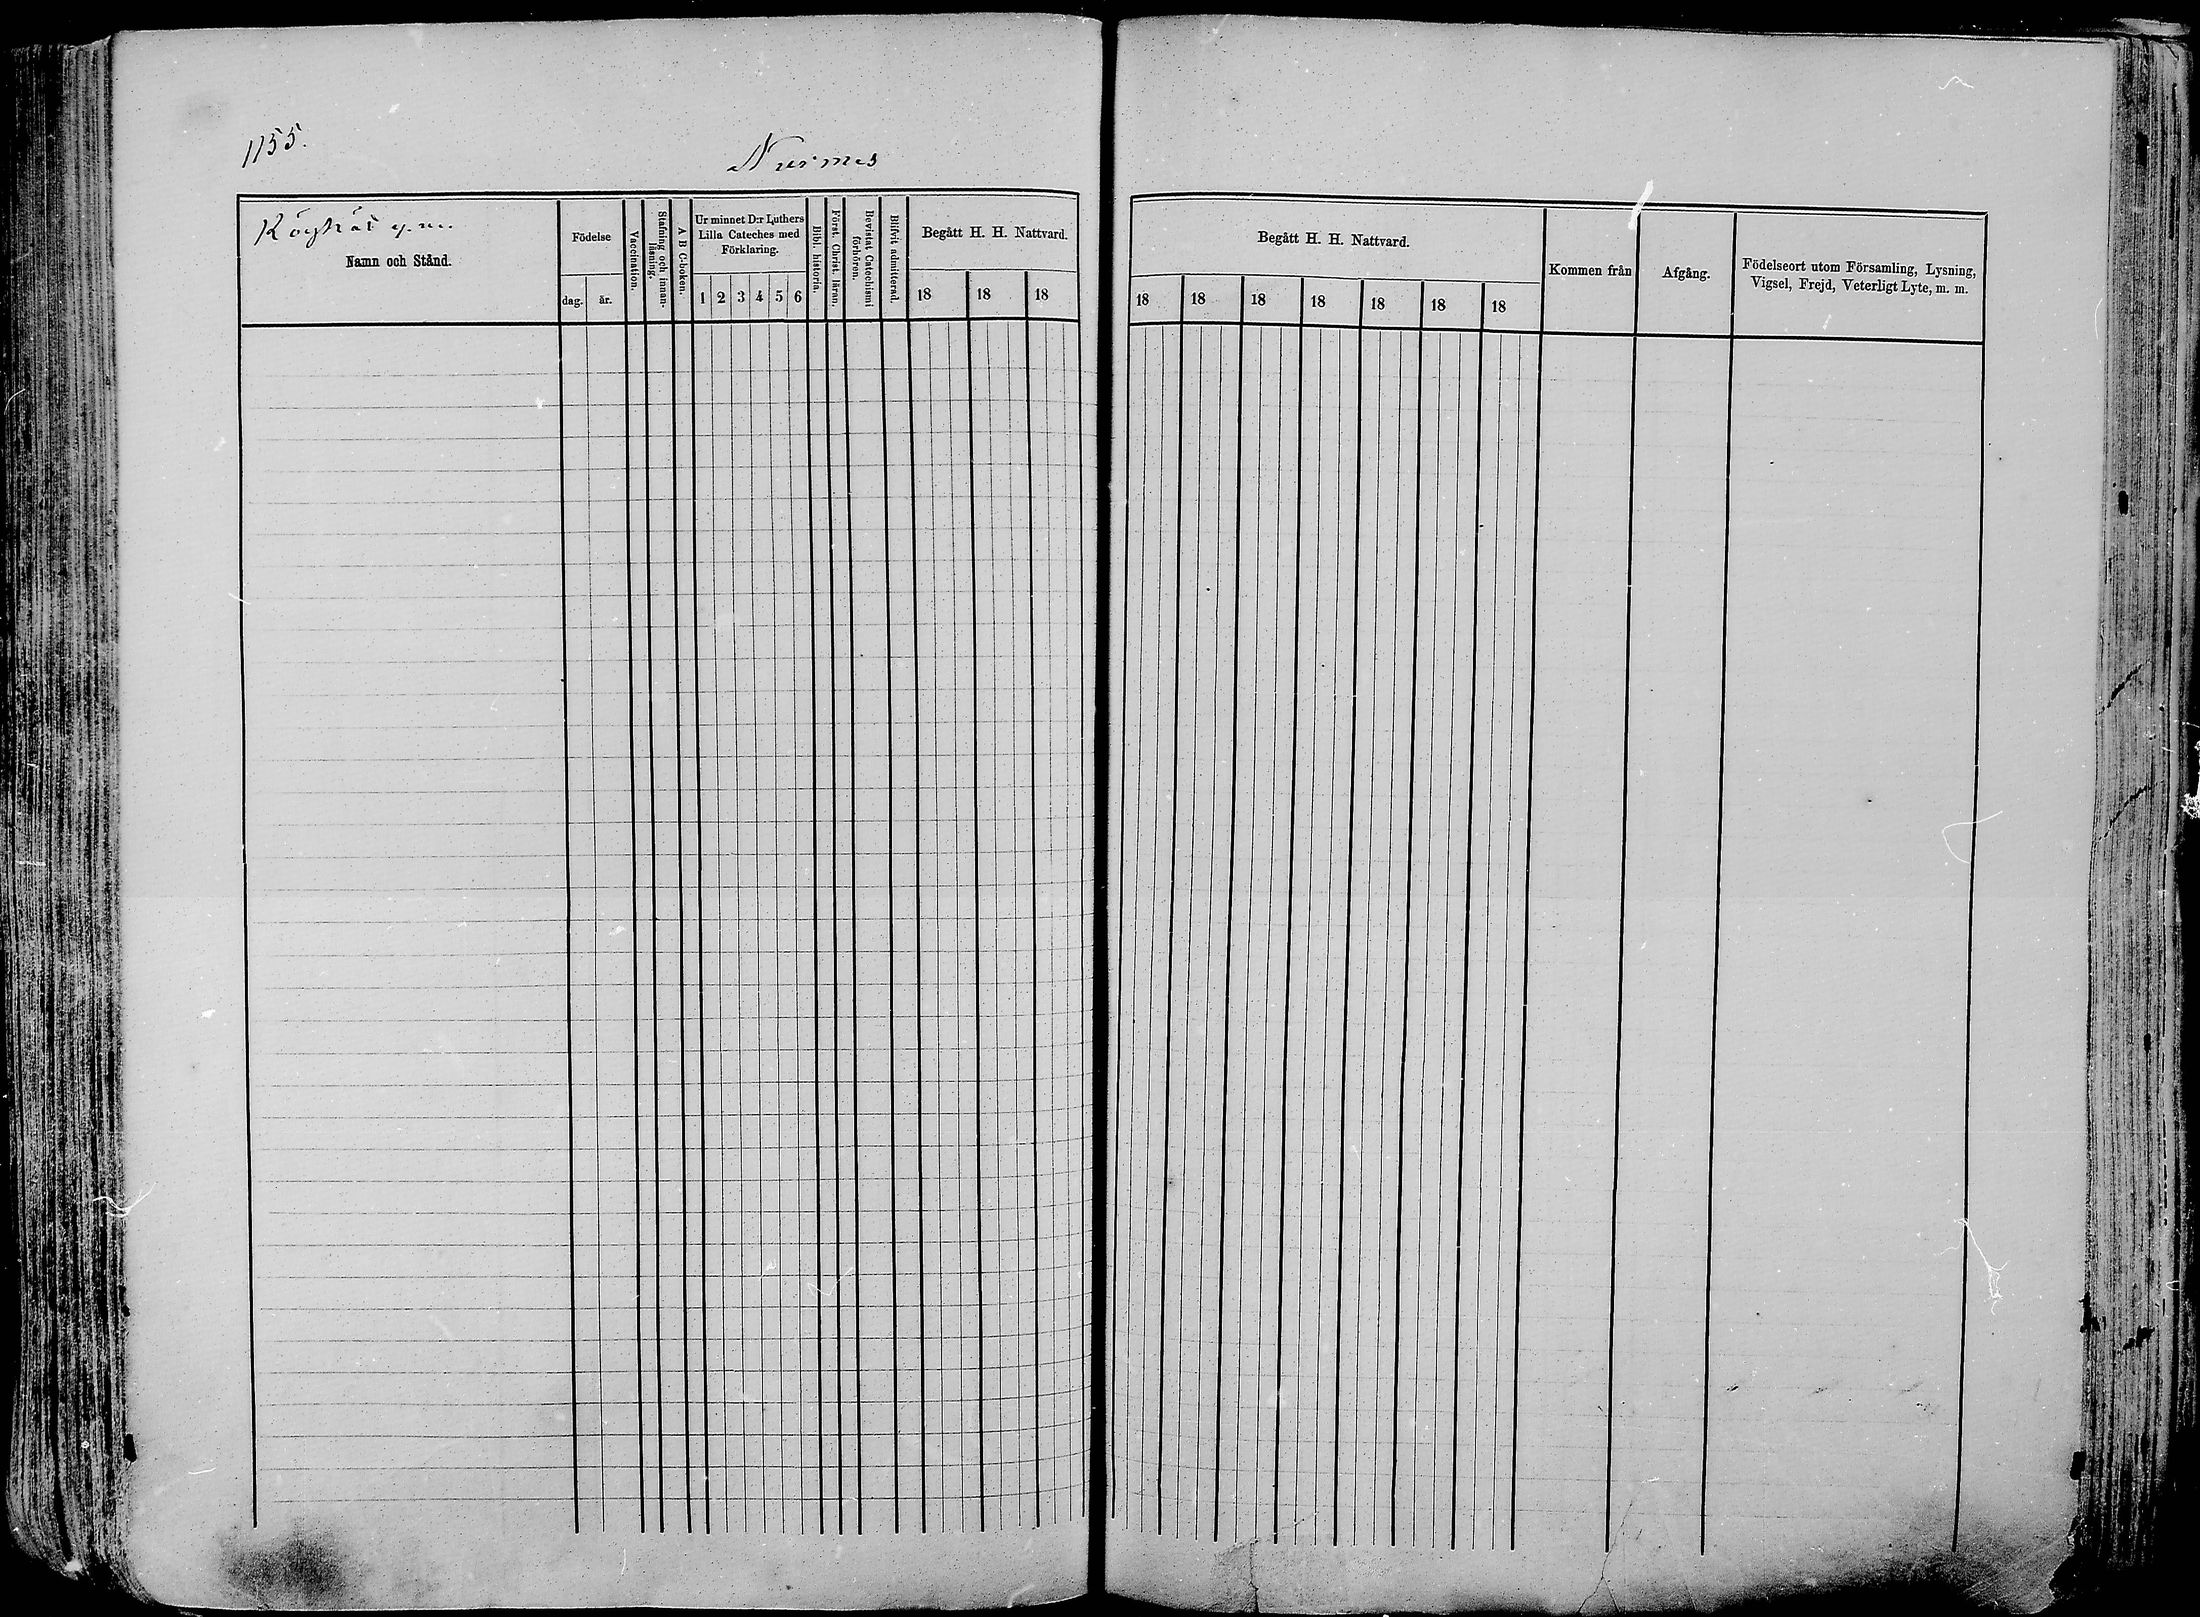 1155.
Nurmes
Namn och Stånd.
Födelse
dag.
år.
Vaccination.
Stafning och innan-
läsning.
A B C-boken.
Ur minnet D:r Luthers
Lilla Cateches med
Förklaring.
1 2 3 4 5 6
Bibl. historia.
Först. Christ. läran.
Bevistat Catechismi
förhören.
Blifvit admitterad.
Begått H. H. Nattvard.
18 18 18
Begått H. H. Nattvard.
18 18 18 18 18 18 18
Kommen från
Afgång.
Födelseort utom Församling, Lysning,
Vigsel, Frejd, Veterligt Lyte, m. m.